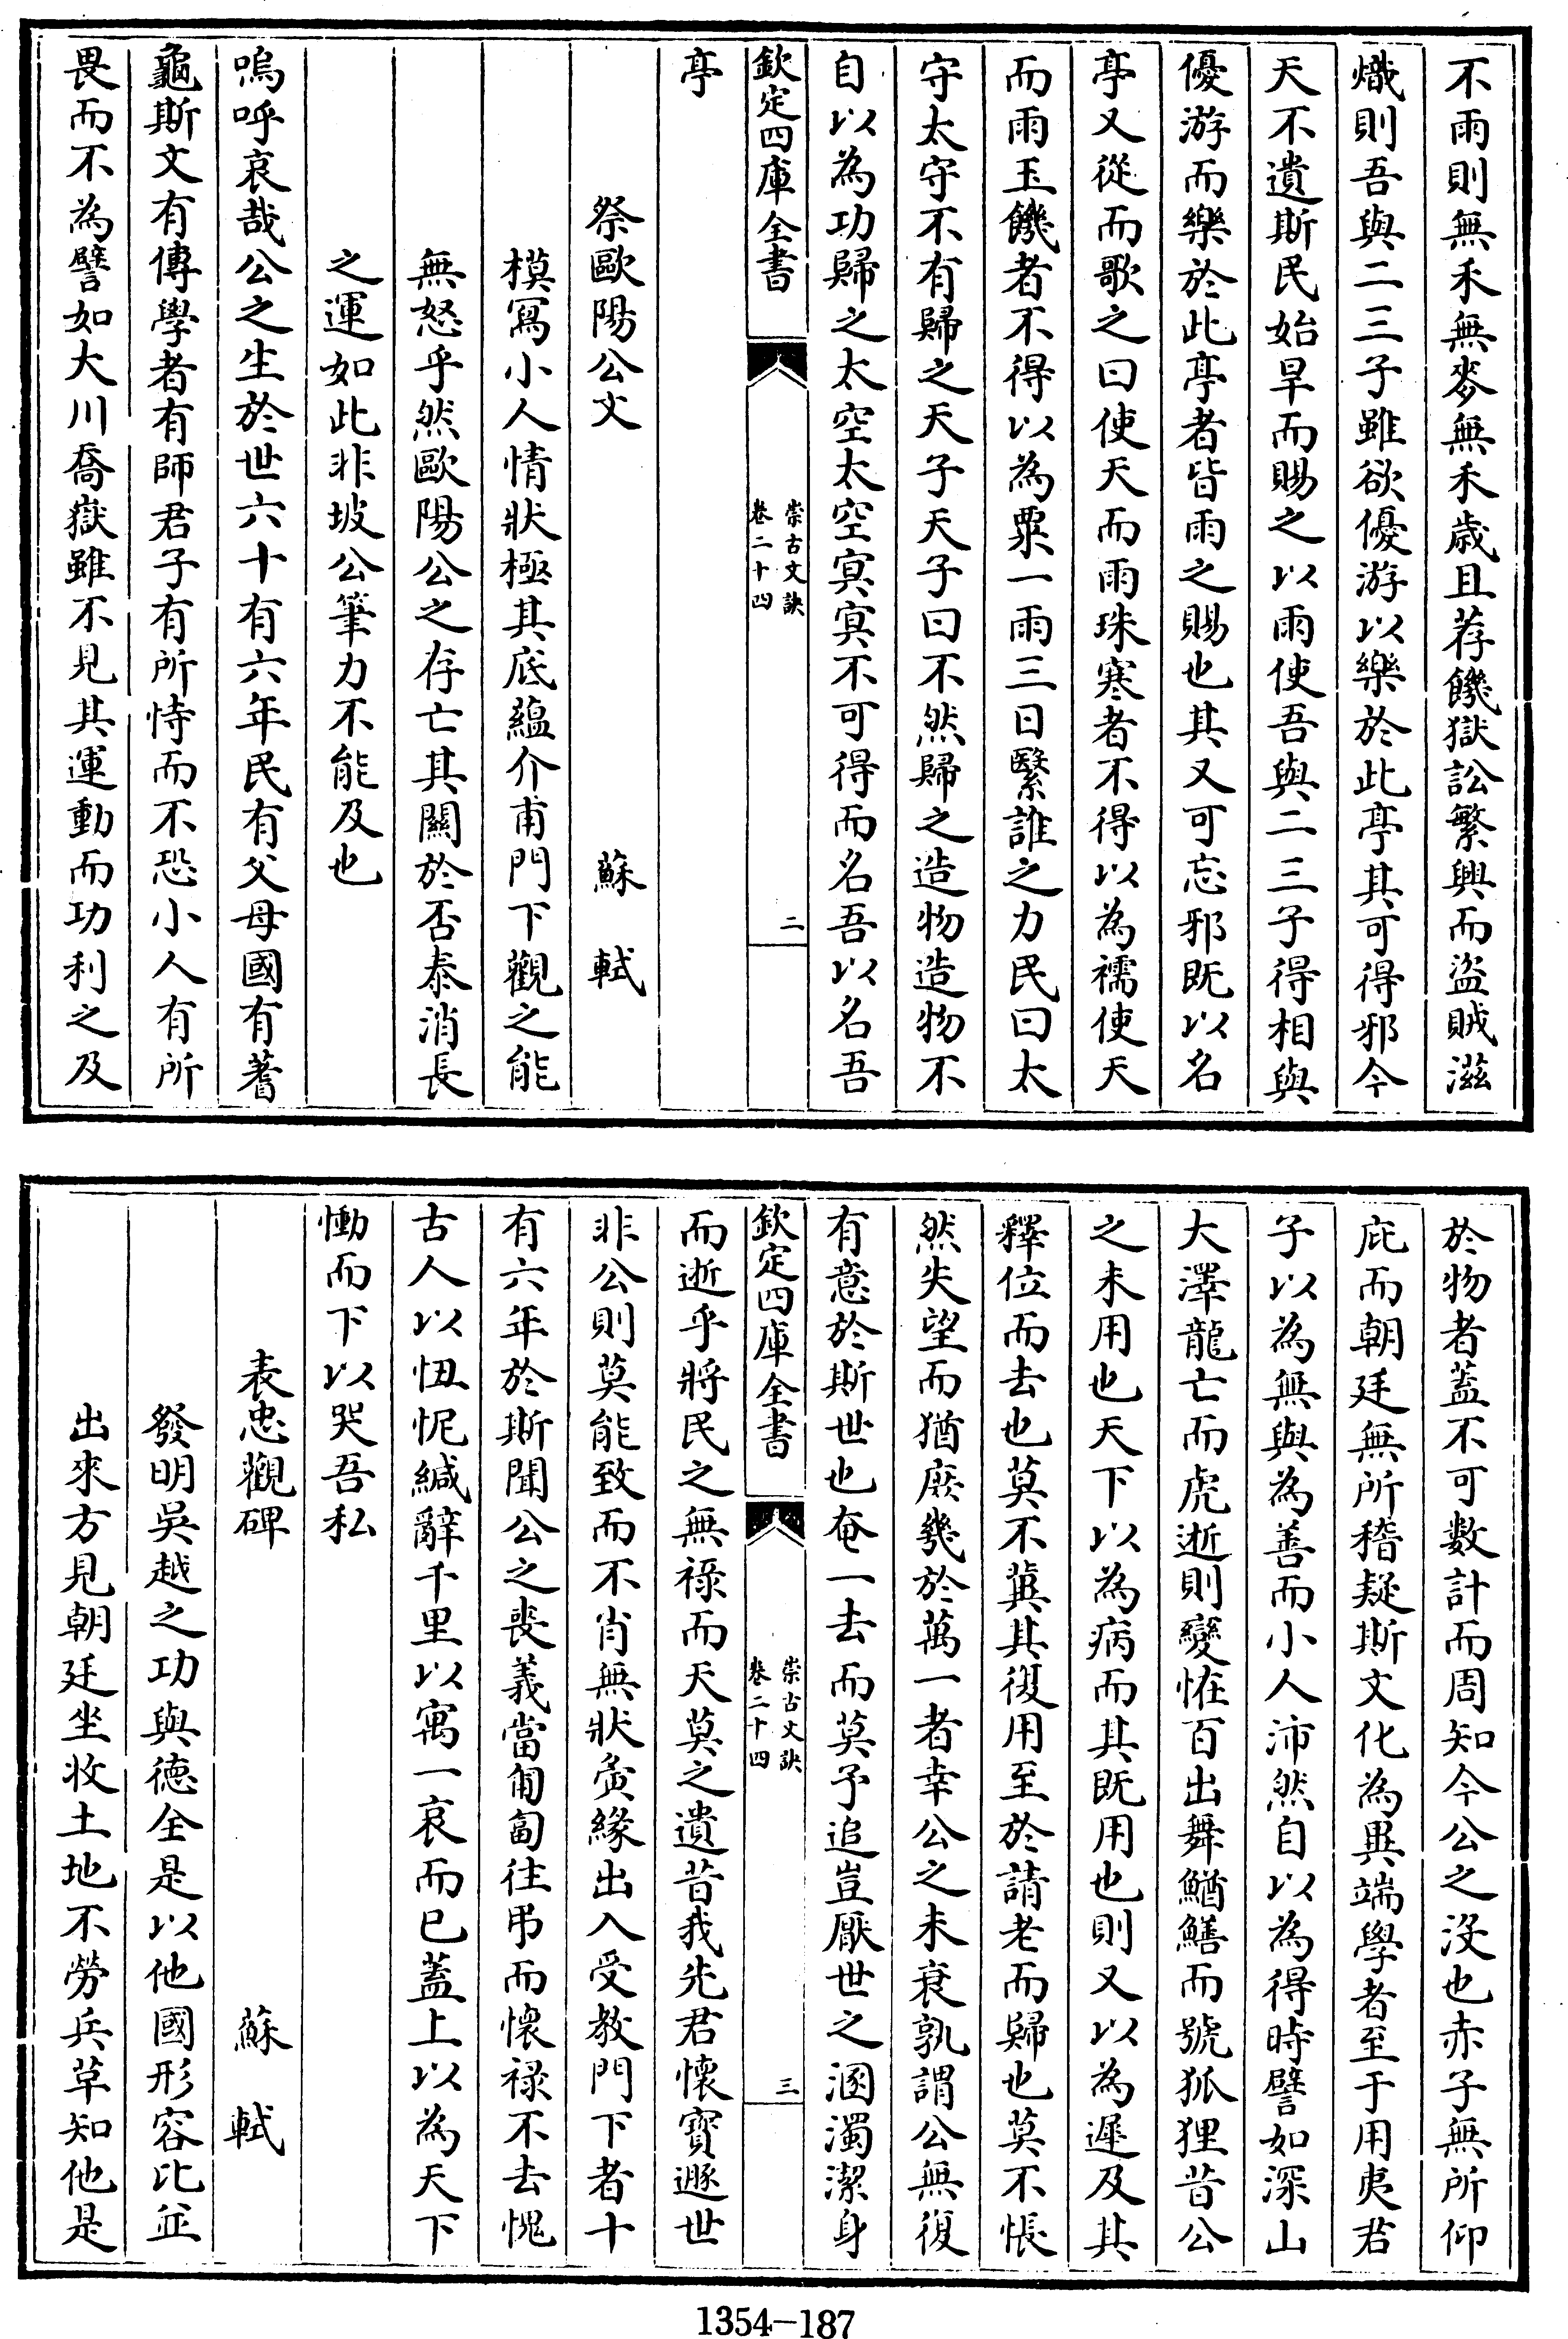 不雨則無禾無麥無禾歲且荐饑獄訟繁興而盜賊滋
熾則吾與二三子雖欲優游以樂於此亭其可得邪今
天不遺斯民始旱而賜之以雨使吾與二三子得相與
優游而樂於此亭者皆雨之賜也其又可忘邪既以名
亭又從而歌之曰使天而雨珠寒者不得以為襦使天
而雨玉饑者不得以為粟一雨三日繄誰之力民曰太
守太守不有歸之天子天子曰不然歸之造物造物不
自以為功歸之太空太空冥冥不可得而名吾以名吾
欽定四庫全書
崇古文訣
卷二十四
二
亭
祭歐陽公文 蘇軾
模寫小人情狀極其底蘊介甫門下觀之能
無怒乎然歐陽公之存亡其關於否泰消長
之運如此非坡公筆力不能及也
嗚呼哀哉公之生於世六十有六年民有父母國有蓍
龜斯文有傳學者有師君子有所恃而不恐小人有所
畏而不為譬如大川喬嶽雖不見其運動而功利之及
於物者蓋不可數計而周知今公之沒也赤子無所仰
庇而朝廷無所稽疑斯文化為異端學者至于用夷君
子以為無與為善而小人沛然自以為得時譬如深山
大澤龍亡而虎逝則變怪百出舞鰌鱔而號狐狸昔公
之未用也天下以為病而其既用也則又以為遲及其
釋位而去也莫不冀其復用至於請老而歸也莫不悵
然失望而猶庶幾於萬一者幸公之未衰孰謂公無復
有意於斯世也奄一去而莫予追豈厭世之溷濁潔身
欽定四庫全書
崇古文訣
卷二十四
三
而逝乎將民之無祿而天莫之遺昔我先君懷寶遯世
非公則莫能致而不肖無狀夤緣出入受教門下者十
有六年於斯聞公之喪義當匍匐往弔而懷祿不去愧
古人以忸怩緘辭千里以寓一哀而已蓋上以為天下
慟而下以哭吾私
表忠觀碑 蘇軾
發明吳越之功與德全是以他國形容比並
出來方見朝廷坐收土地不勞兵草知他是
1354-187